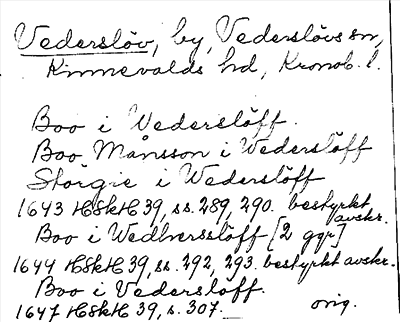 Vederslöv, by, Vederslövs sn,
Kinnevalds hd, Kronob. l.
Boo i Wederslöff.
Boo Månsson i Wederslöff
Störgie i Wederslöff
1643 HSkH 39, ss. 289, 290. bestyrkt avskr.
Boo i Wedhersslöff [2 ggr]
1644 HSkH 39, ss. 292, 293. bestyrkt avskr.
Boo i Vederslöff.
1647 HSkH 39, s. 307. orig.